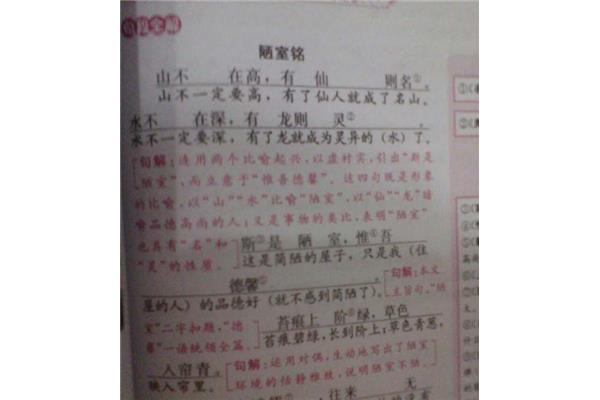 段全解
陋室铭
山不 在高，有 仙 则名①。
山不一定要高，有了仙人就成了名山。
水不 在深，有 龙则 灵②。
水不一定要深，有了龙就成为灵异的（水）了。
句解：连用两个比喻起兴，以虚衬实，引出“斯是
陋室”，而立意于“惟吾德馨”。这四句既是形象
的比喻，以“山”“水”比喻“陋室”，以“仙”“龙”暗
喻品德高尚的人；又是事物的类比，表明“陋室”
也具有“名”和
“灵”的性质。
斯③是 陋 室，惟④吾
这是简陋的屋子，只是我（住
德馨⑤ 。
屋的人）的品德好（就不感到简陋了）。
句解：本文
主旨句。“陋
室”二字扣题，“德
馨”一语统领全篇。
苔痕上 阶⑥绿，草色
苔痕碧绿，长到阶上；草色青葱，
入帘青。
映入帘里。
句解：运用对偶，生动地写出了陋室
环境的恬静雅致，说明陋室不陋。
往来 无